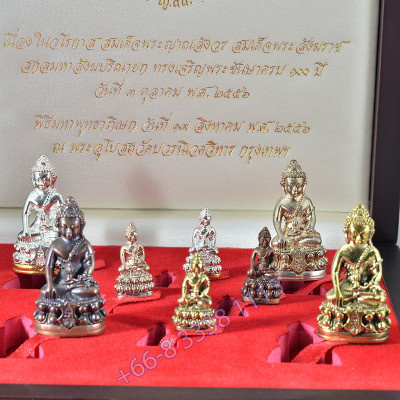 ญ.ส.ส.
เนื่องในวโรกาส สมเด็จพระญาณสังวร สมเด็จพระสังฆราช
สกลมหาสังฆปริณายก ทรงเจริญพระชันษาครบ ๑๐๐ ปี
วันที่ ๓ ตุลาคม พ.ศ. ๒๕๕๖
พิธีมหาพุทธาภิเษก วันที่ ๑๙ สิงหาคม พ.ศ. ๒๕๕๖
ณ พระอุโบสถวัดบวรนิเวศวิหาร กรุงเทพฯ